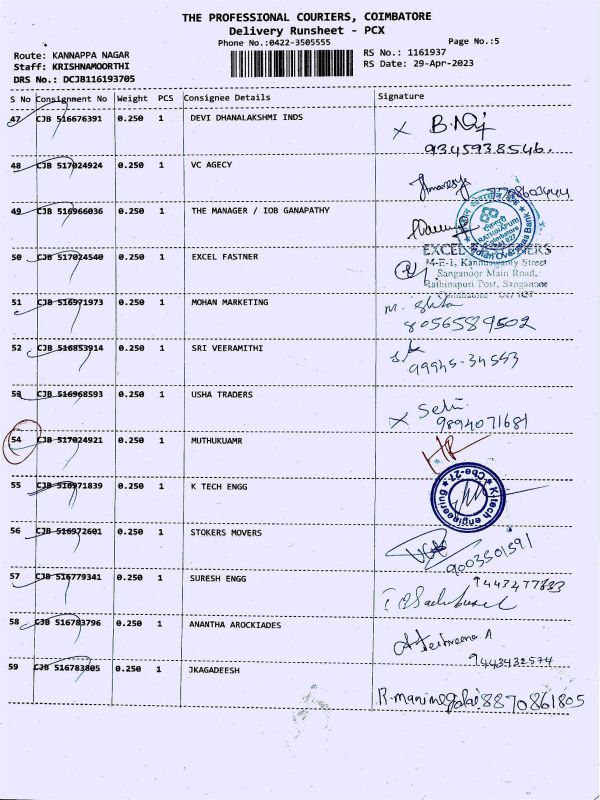 THE PROFESSIONAL COURIERS, COIMBATORE
Delivery Runsheet - PCX
Phone No.:0422-3505555 Page No.:5
Route: KANNAPPA NAGAR RS No.: 1161937
Staff: KRISHNAMOORTHI RS Date: 29-Apr-2023
DRS No.: DCJB116193705
S No Consignment No Weight PCS Consignee Details Signature
47 CJB 516676391 0.250 1 DEVI DHANALAKSHMI INDS
9345938546.
48 CJB 517024924 0.250 1 VC AGECY
49 CJB 516966036 0.250 1 THE MANAGER / IOB GANAPATHY
RATHINAPURI
Indian Overseas Bank
50 CJB 517024540 0.250 1 EXCEL FASTNER
EXCEL
Street
Sanganoor Main Road,
Rathinapuri Post, Sanganoor
51 CJB 516971973 0.250 1 MOHAN MARKETING
8056589502
52 CJB 516853914 0.250 1 SRI VEERAMITHI
99945-34553
53 CJB 516968593 0.250 1 USHA TRADERS
9894071681
54 CJB 517024921 0.250 1 MUTHUKUAMR
55 CJB 516971839 0.250 1 K TECH ENGG
K tech engineering Cbe-27
56 CJB 516972601 0.250 1 STOKERS MOVERS
9003501591
57 CJB 516779341 0.250 1 SURESH ENGG
58 CJB 516783796 0.250 1 ANANTHA AROCKIADES
9443432574
59 CJB 516783805 0.250 1 JKAGADEESH
R. manimegalai 8870861805